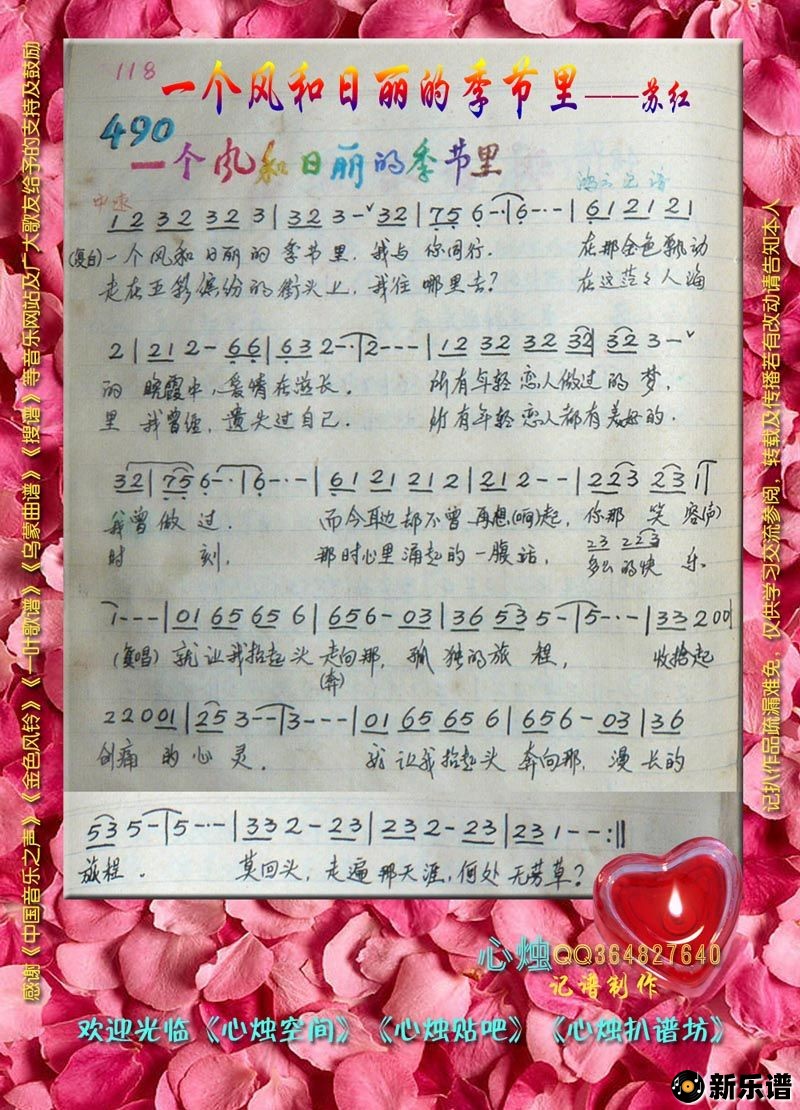 118
一个风和日丽的季节里——苏红
490
一个风和日丽的季节里
中速
1 2 3 2 3 2 3 | 3 2 3 -ˇ 3 2 | 7 5 6 - · | 6 - · - | 6 1 2 1 2 1
(复白) 一个风和日丽的季节里,我与你同行. 在那金色飘动
走在五彩缤纷的街头上,我往哪里去? 在这茫々人海
2 | 2 1 2 - 6 6 | 6 3 2 - · | 2 - - - | 1 2 3 2 3 2 3 2 | 3 2 3 -ˇ
的晚霞中,爱情在滋长. 所有年轻恋人做过的梦,
里我曾经,遗失过自己. 所有年轻恋人都有美好的.
3 2 | 7 5 6 - · | 6 - · - | 6 1 2 1 2 1 2 | 2 1 2 - - | 2 2 3 2 3 1 |
我曾做过. 而今耳边都不曾再想(响)起,你那笑容(声)
2 3 2 2 3
时刻, 那时心里涌起的一腹话, 多么的快乐.
1 - - - | 0 1 6 5 6 5 6 | 6 5 6 - 0 3 | 3 6 5 3 5 - | 5 - · - | 3 3 2 0 0 1
(复唱) 就让我抬起头走向那,孤独的旅程, 收拾起
(奔)
2 2 0 0 0 1 | 2 5 3 - - | 3 - - - | 0 1 6 5 6 5 6 | 6 5 6 - 0 3 | 3 6
创痛的心灵. 就让我抬起头奔向那,漫长的
5 3 5 - | 5 - · - | 3 3 2 - 2 3 | 2 3 2 - 2 3 | 2 3 1 - - :||
旅程. 莫回头,走遍那天涯,何处无芳草?
感谢《中国音乐之声》《金色风铃》《一叶歌谱》《乌蒙曲谱》《搜谱》等音乐网站及广大歌友给予的支持及鼓励
记扒作品疏漏难免,仅供学习交流参阅,转载及传播若有改动请告知本人
心烛QQ364827640
记谱制作
欢迎光临《心烛空间》《心烛贴吧》《心烛扒谱坊》
新乐谱